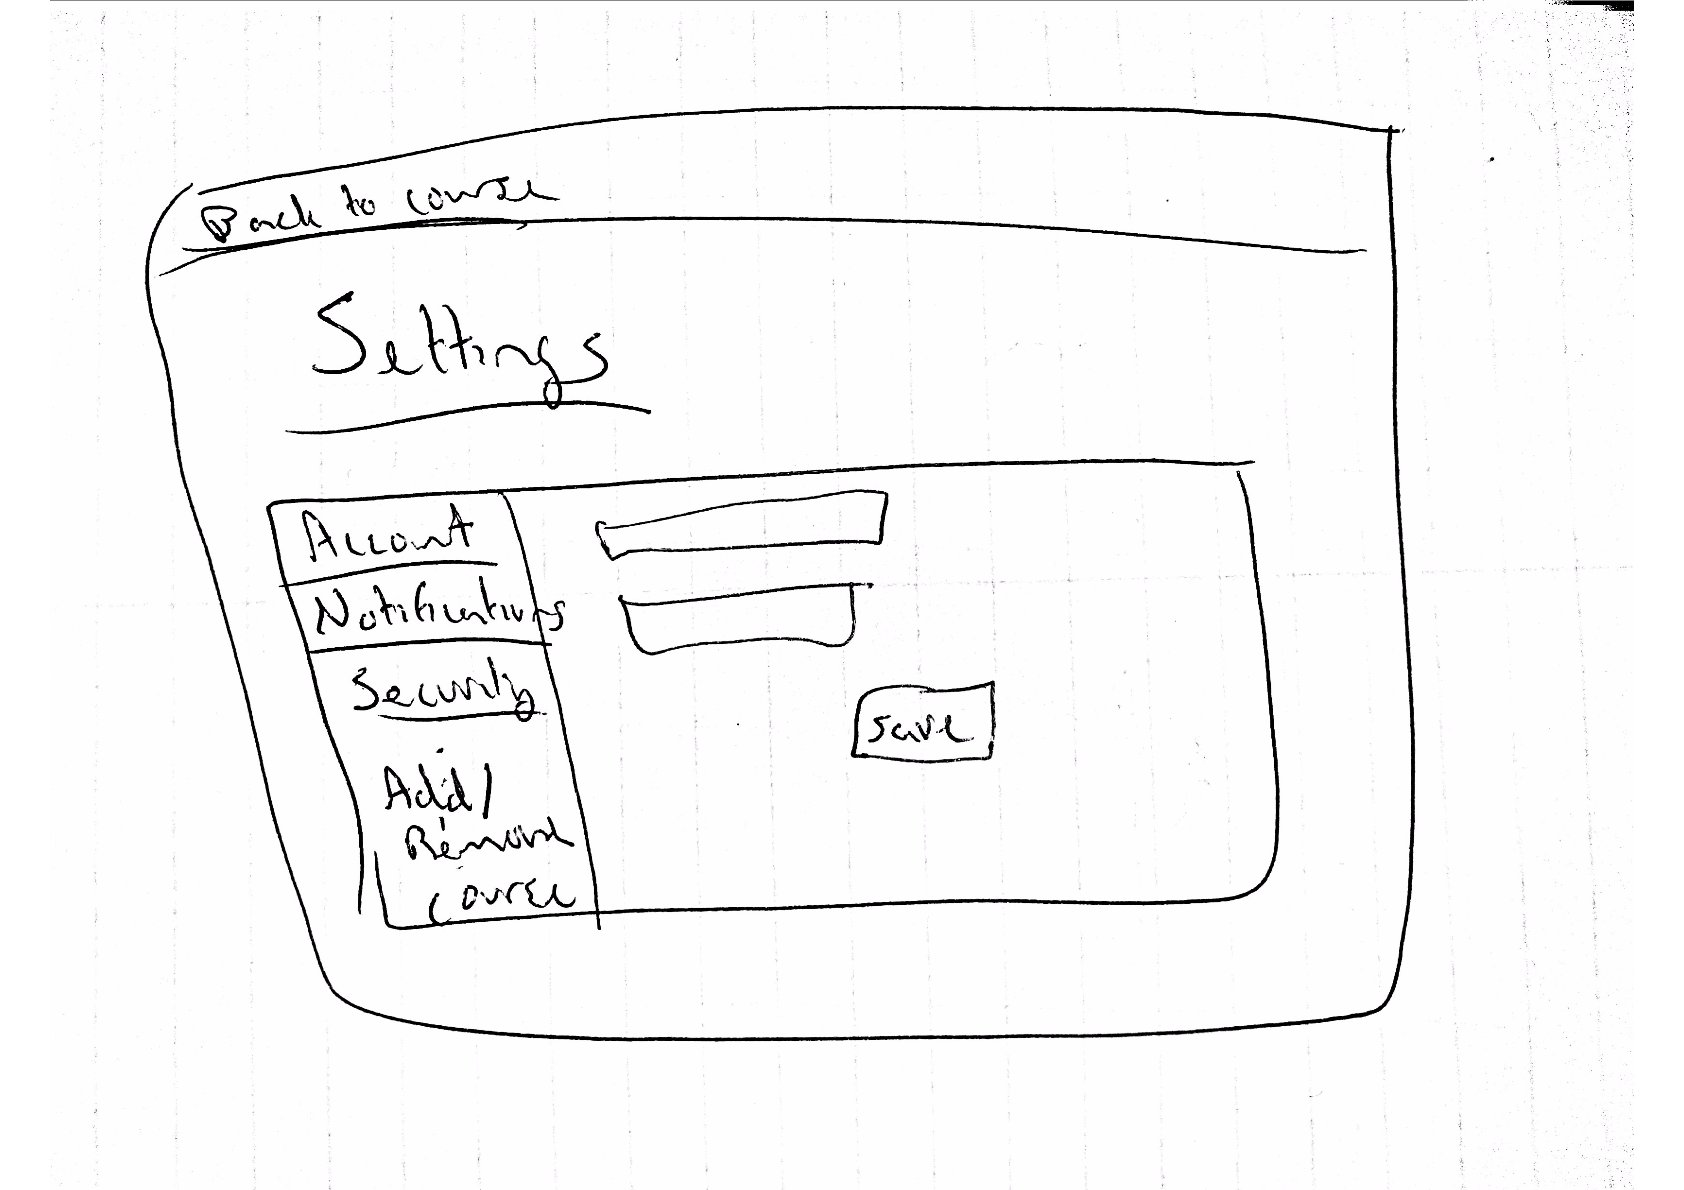 Back to course
Settings
Account
Notifications
Security
Add/
Remove
course
save